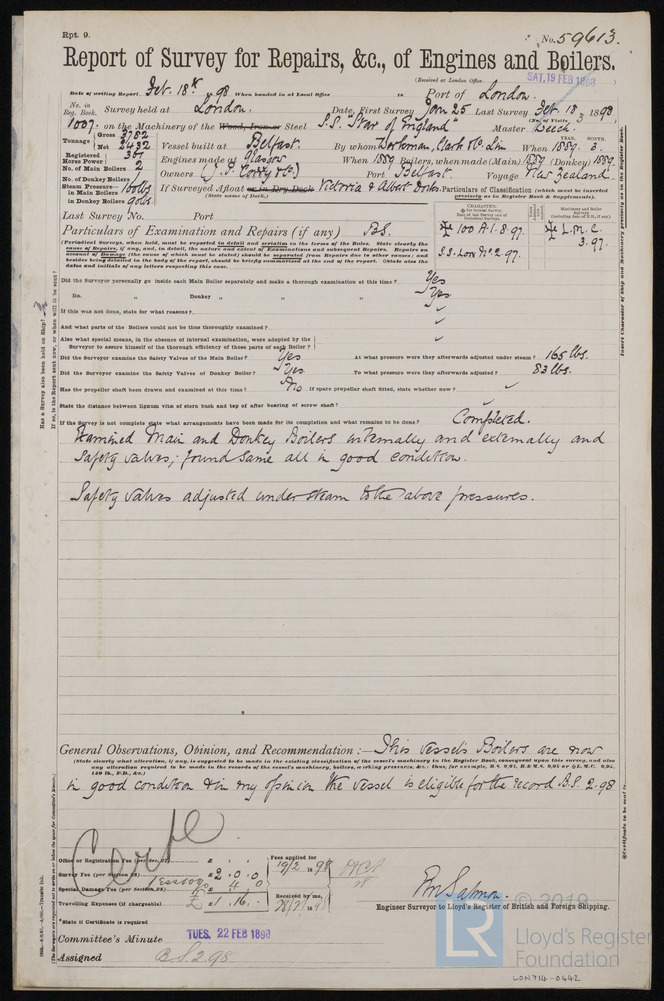 Rpt. 9.
No. 59613.
Report of Survey for Repairs, &c., of Engines and Boilers.
(Received at London Office SAT. 19 FEB 1898
Date of writing Report. Feb. 18th 98 When handed in at Local Office is Port of London.
No. in Reg. Book. Survey held at London. Date, First Survey Jan 25 Last Survey. Feb. 18 1898
(No. of Visits 3)
1007. on the Machinery of the Wood, Iron or Steel S.S. "Star of England" Master Beech.
Tonnage Gross 3782 Net 2432 Vessel built at Belfast. By whom Workman, Clark & Co. Lim When 1889. 3.
YEAR. MONTH.
Registered Horse Power 367 Engines made at Glasgow When 1889 Boilers, when made (Main) 1889 (Donkey) 1889.
No. of Main Boilers 2 Owners (J. P. Corry & Co.) Port Belfast. Voyage New Zealand.
No. of Donkey Boilers
Steam Pressure in Main Boilers 160 lbs If Surveyed Afloat or in Dry Dock Victoria & Albert Docks.
in Donkey Boilers 90 lbs. (State name of Dock.)
Particulars of Classification (which must be inserted precisely as in Register Book & Supplements).
Last Survey No. Port
Particulars of Examination and Repairs (if any) B.S.
100 A.1. 8.97.
S.S. Lon No 2. 97.
L.M.C. 3.97.
(Periodical Surveys, when held, must be reported in detail and seriatim in the terms of the Rules. State clearly the
cause of Repairs, if any, and, in detail, the nature and extent of Examinations and subsequent Repairs. Repairs on
account of Damage (the cause of which must be stated) should be separated from Repairs due to other causes; and
besides being detailed in the body of the report, should be briefly summarised at the end of the report. State also the
dates and initials of any letters respecting this case.
Did the Surveyor personally go inside each Main Boiler separately and make a thorough examination at this time? Yes
Do. " Donkey " " " Yes
If this was not done, state for what reasons?
And what parts of the Boilers could not be thus thoroughly examined?
Also what special means, in the absence of internal examination, were adopted by the
Surveyor to assure himself of the thorough efficiency of those parts of each Boiler?
Did the Surveyor examine the Safety Valves of the Main Boiler? Yes At what pressure were they afterwards adjusted under steam? 165 lbs.
Did the Surveyor examine the Safety Valves of Donkey Boiler? Yes To what pressure were they afterwards adjusted? 83 lbs.
Has the propeller shaft been drawn and examined at this time? No If spare propeller shaft fitted, state whether new?
State the distance between lignum vitæ of stern bush and top of after bearing of screw shaft?
If the Survey is not complete state what arrangements have been made for its completion and what remains to be done? Completed.
Examined Main and Donkey Boilers internally and externally and
Safety valves; found same all in good condition.
Safety valves adjusted under steam to the above pressures.
General Observations, Opinion, and Recommendation :— This vessel's Boilers are now
(State clearly what alteration, if any, is suggested to be made in the existing classification of the vessel's machinery in the Register Book, consequent upon this survey, and also
any alteration required to be made in the records of the vessel's machinery, boilers, working pressures, &c.
in good condition & in my opinion the vessel is eligible for the record B.S. 2.98
Office or Registration Fee
Survey Fee (per Section 28) £2.0.0
Special Damage Fee (per Section 28) 4.0
Travelling Expenses (if chargeable) £1.16.
Fees applied for 19/2 1898
Received by me,
State if Certificate is required
Salmon.
Engineer Surveyor to Lloyd's Register of British and Foreign Shipping.
Committee's Minute TUES. 22 FEB 1898
Assigned B.S. 2.98
© 2019
LR
Lloyd's Register
Foundation
LON714-0442